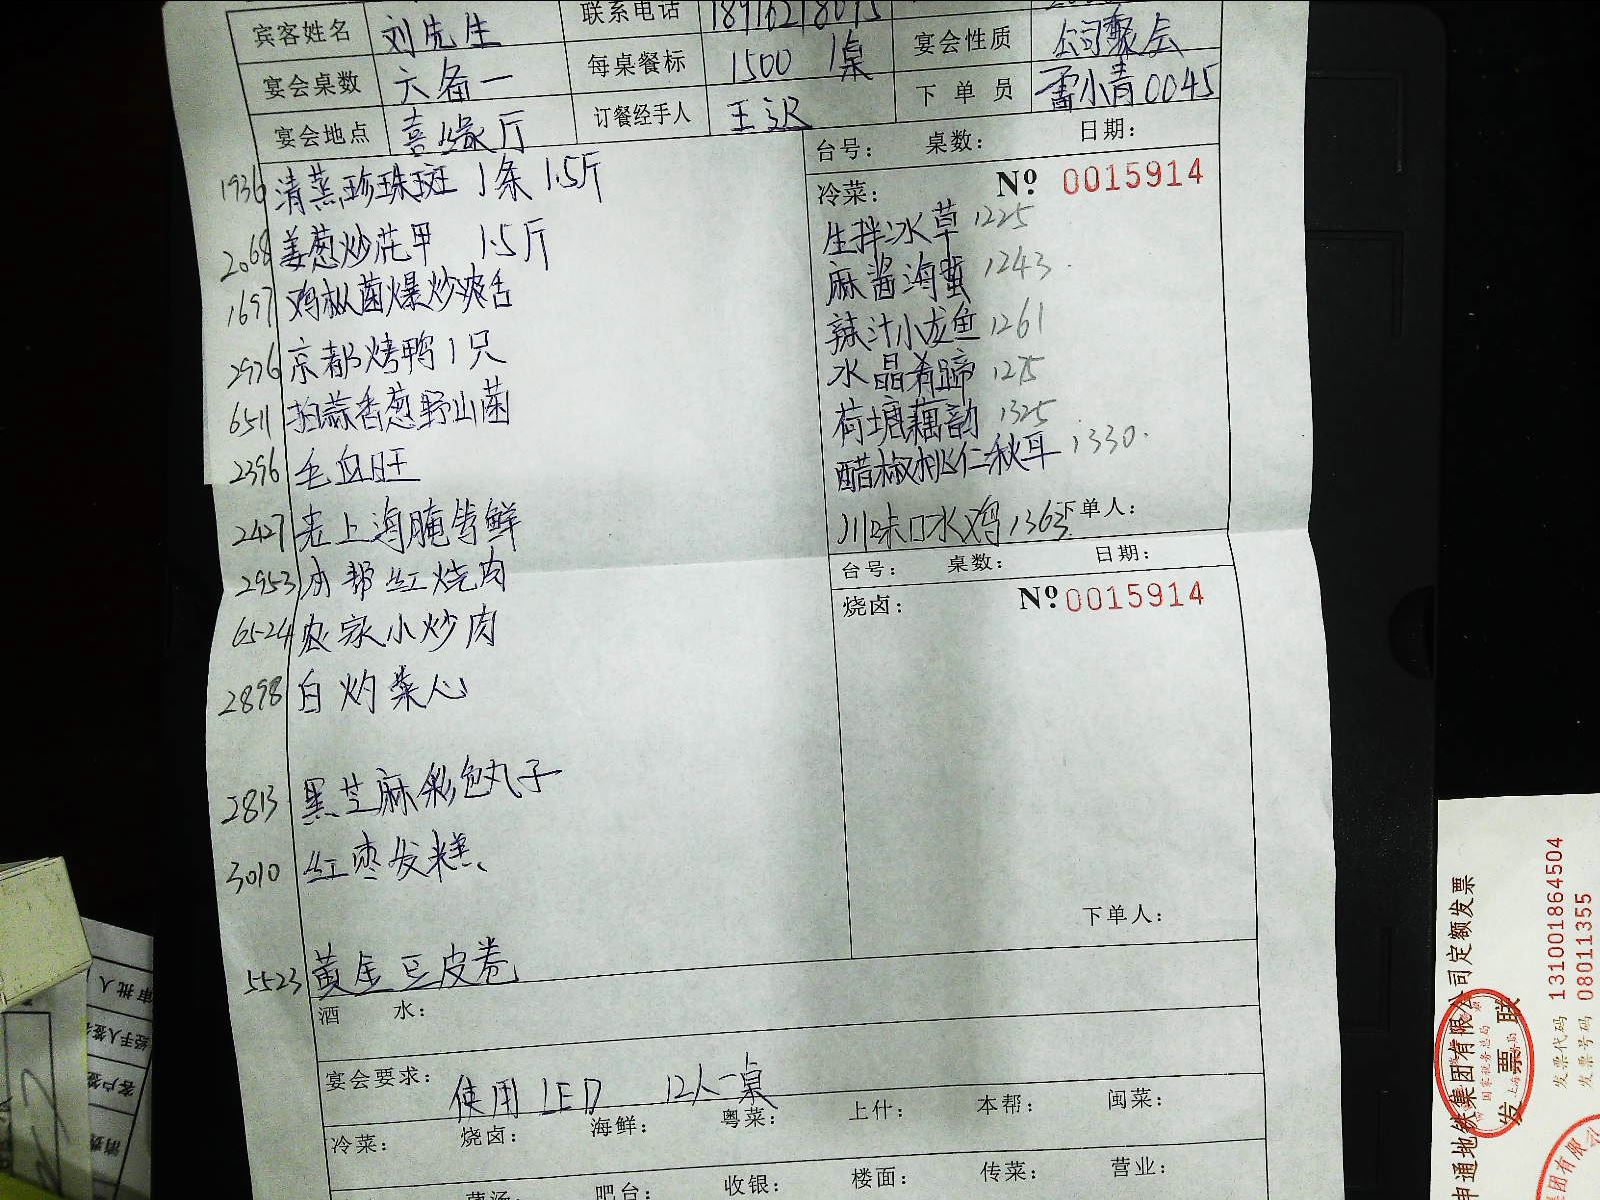 宾客姓名 刘先生 联系电话
宴会桌数 六备一 每桌餐标 1500 1桌 宴会性质 公司聚会
宴会地点 喜缘厅 订餐经手人 下单员 雷小青0045
台号： 桌数： 日期：
冷菜： Nº 0015914
生拌冰草 1225
麻酱海蜇 1243
辣汁小龙鱼 1261
水晶肴蹄 1275
荷塘藕韵 1325
醋椒桃仁秋耳 1330
川味口水鸡 1363 下单人：
1936 清蒸珍珠斑 1条 1.5斤
2068 姜葱炒花甲 1.5斤
1697 鸡枞菌爆炒爽舌
2976 京都烤鸭1只
6511 拍蒜香葱野山菌
2396 毛血旺
2427 老上海腌笃鲜
2953 本帮红烧肉
6524 农家小炒肉
2898 白灼菜心
2813 黑芝麻彩色丸子
3010 红枣发糕
5523 黄金豆皮卷
台号： 桌数： 日期：
烧卤： Nº 0015914
下单人：
酒 水：
宴会要求： 使用LED 12人一桌
冷菜： 烧卤： 海鲜： 粤菜： 上什： 本帮： 闽菜：
吧台： 收银： 楼面： 传菜： 营业：
审批人
客户签
申通地铁集团有限公司定额发票
发票联
发票代码 131001864504
发票号码 08011355